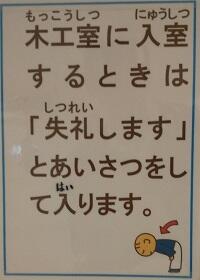 もっこうしつ　にゅうしつ
木工室に入室
するときは
しつれい
「失礼します」
とあいさつをし
はい
て入ります。